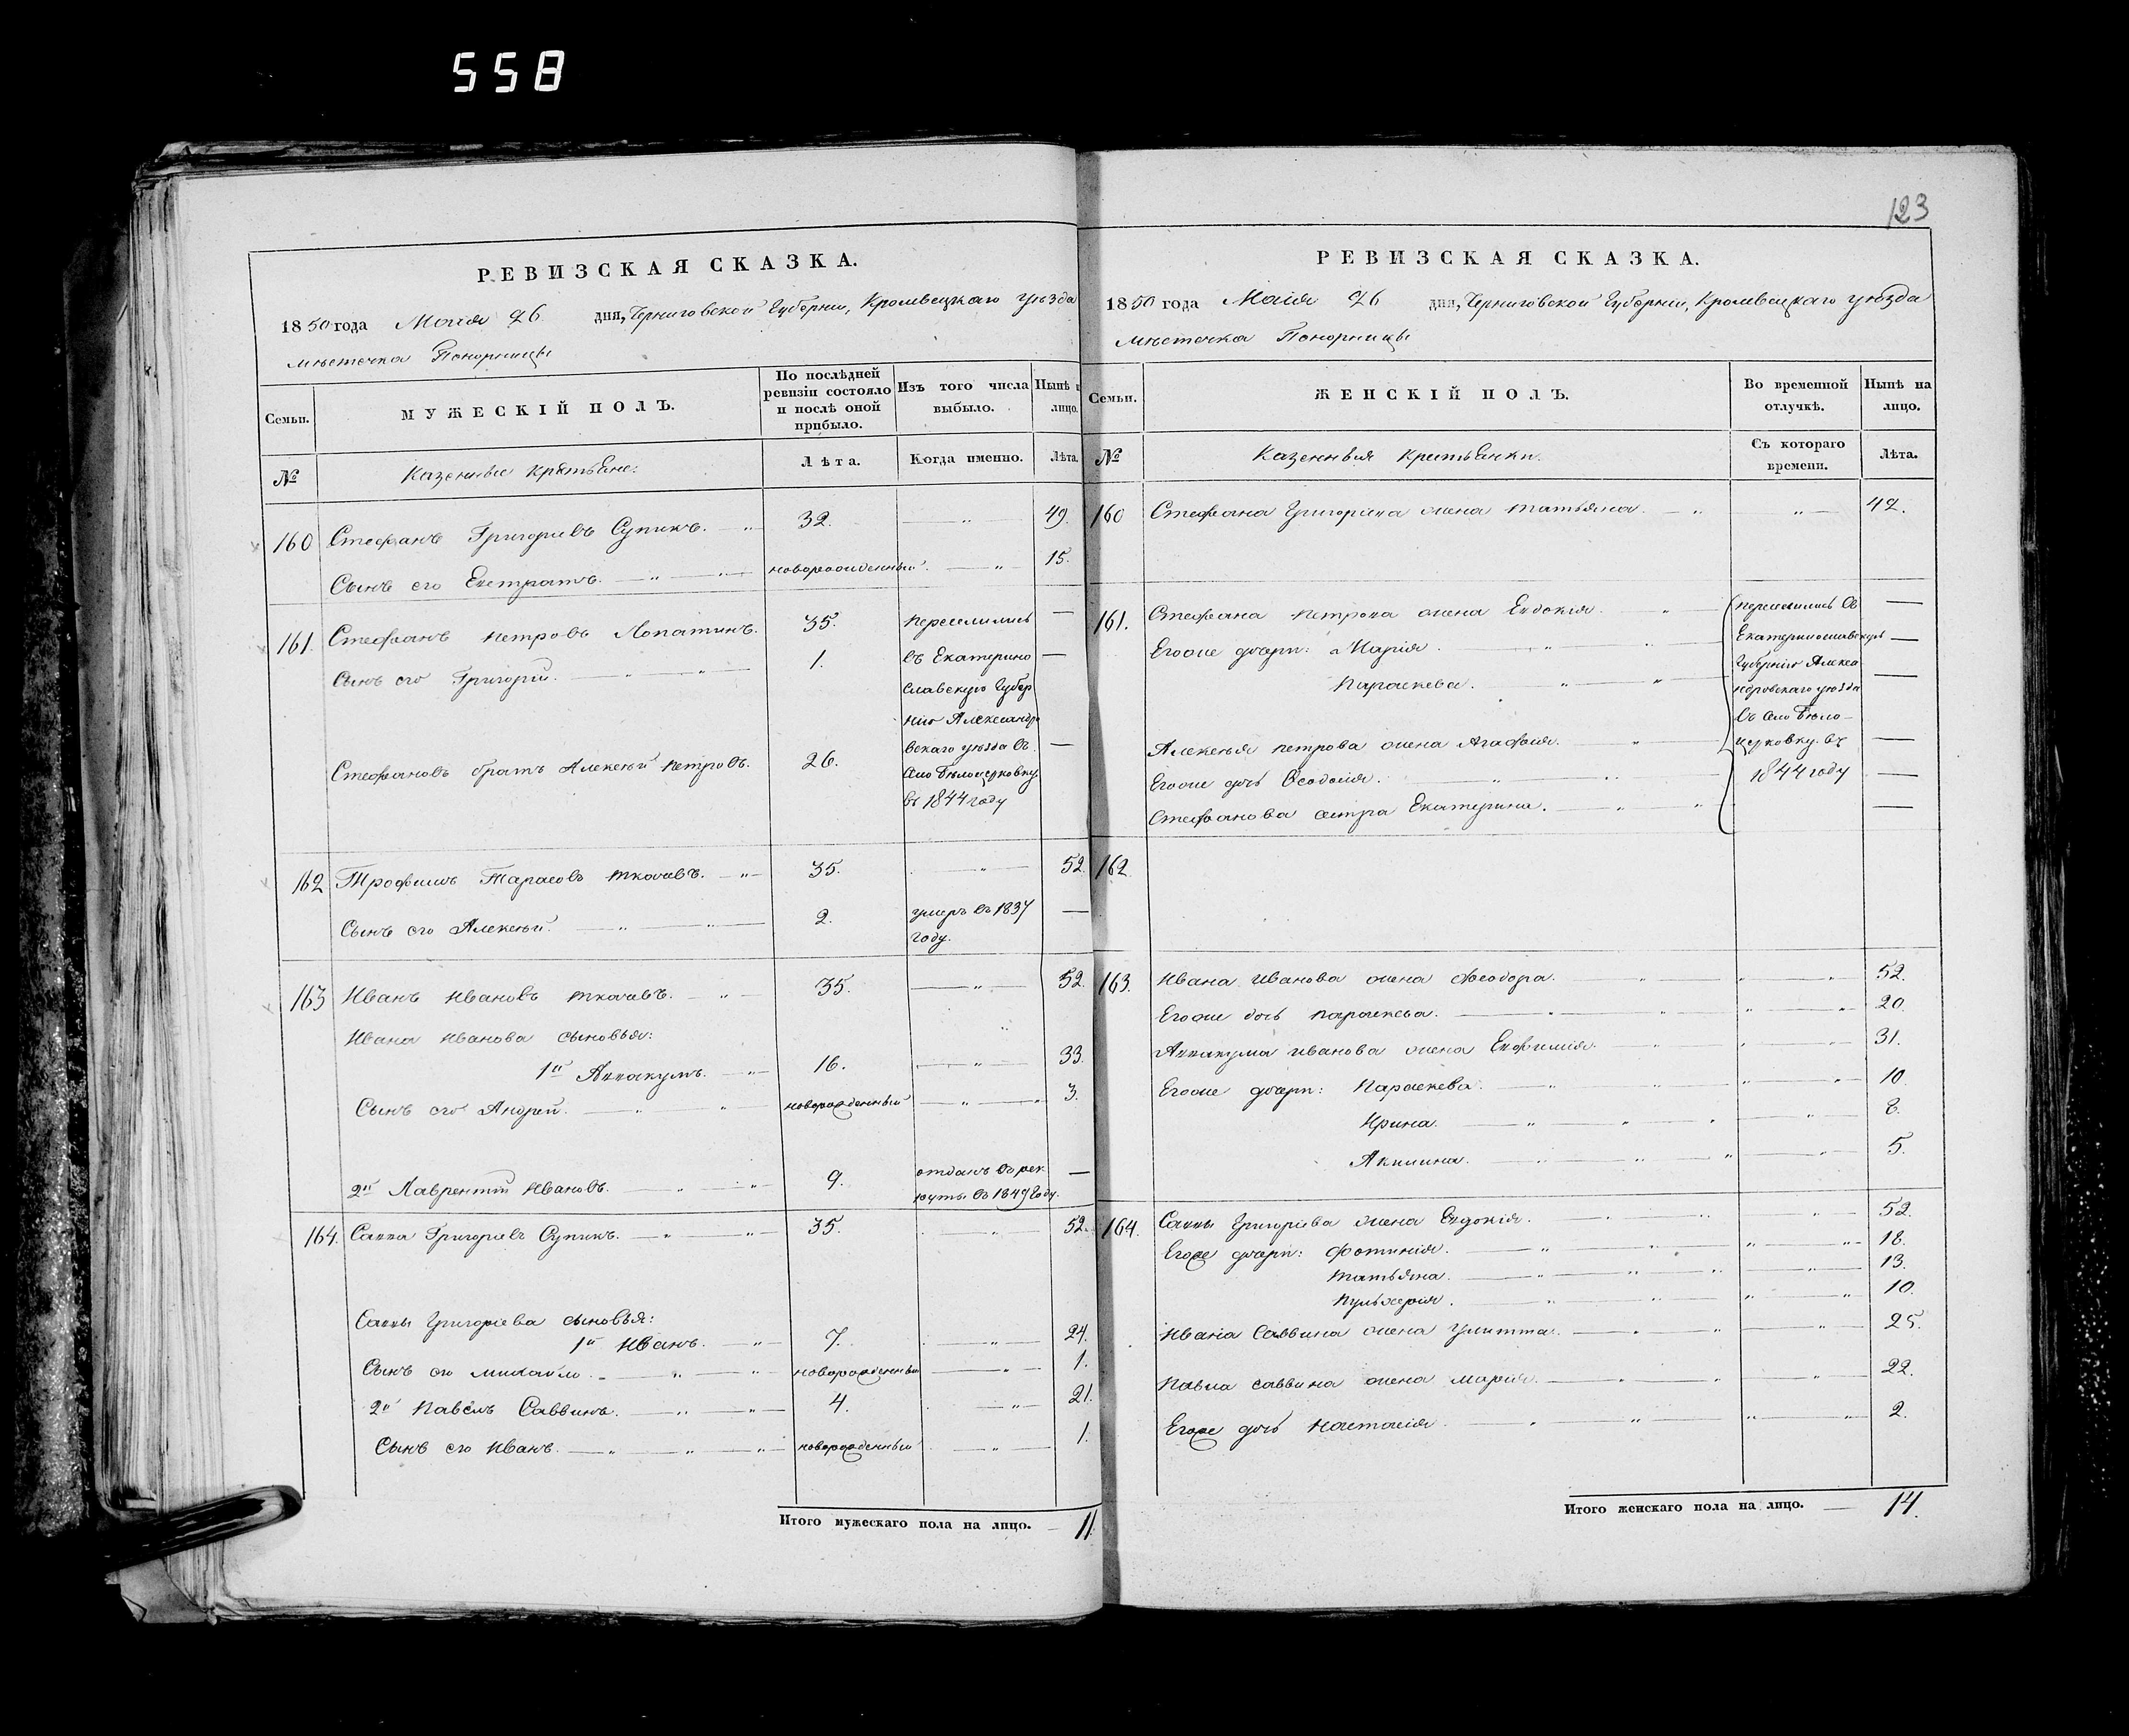 558
123
РЕВИЗСКАЯ СКАЗКА.
1850 года Маія 26 дня, Черниговской Губерніи, Кролевецкаго уѣзда
мѣстечка Понорницы
Семьи.
МУЖЕСКІЙ ПОЛЪ.
По послѣдней ревизіи состояло и послѣ оной прибыло.
Изъ того числа выбыло.
Нынѣ
лицо.
№
Казенные Крестьяне:
Лѣта.
Когда именно.
Лѣта.
160 Стефанъ Григорьевъ Супикъ. 32. 49.
Сынъ его Евстратъ. новорожденный. 15.
161. Стефанъ Петровъ Лопатинъ. 35. переселились
Сынъ его Григорій. 1. въ Екатерино
славскую Губер
нію Александро
Стефановъ братъ Алексѣй Петровъ. 26. вскаго уѣзда въ
село Бѣлоцерковку
въ 1844 году
162 Трофимъ Тарасовъ Ткачевъ. 35. 52.
Сынъ его Алексѣй. 2. умеръ въ 1837
году.
163 Иванъ Ивановъ Ткачевъ. 35. 52.
Ивана Иванова сыновья:
1й Аввакумъ. 16. 33.
Сынъ его Андрей. новорожденный 3.
2й Лаврентій Ивановъ. 9. отданъ въ рек
руты въ 1849 году.
164. Савва Григорьевъ Супикъ. 35. 52.
Саввы Григорьева сыновья:
1й Иванъ. 7. 24.
Сынъ его Михайло. новорожденный 1.
2й Павелъ Саввинъ. 4. 21.
Сынъ его Иванъ. новорожденный 1.
Итого мужескаго пола на лицо. 11.
РЕВИЗСКАЯ СКАЗКА.
1850 года Маія 26 дня, Черниговской Губерніи, Кролевецкаго уѣзда
мѣстечка Понорницы
Семьи.
ЖЕНСКІЙ ПОЛЪ.
Во временной отлучкѣ.
Нынѣ на лицо.
№
Казенныя Крестьянки.
Съ котораго времени.
Лѣта.
160 Стефана Григорьева жена Татьяна. 42.
161. Стефана Петрова жена Евдокія. переселились въ
Егоже дочери: Марія. Екатеринославскую
Губернію Алекса
Параскева. ндровскаго уѣзда
въ село Бѣло-
Алексѣя Петрова жена Агафія. церковку въ
Егоже дочь Ѳеодосія. 1844 году
Стефанова сестра Екатерина.
162
163. Ивана Иванова жена Феодора. 52.
Егоже дочь Параскева. 20.
Аввакума Иванова жена Евфимія. 31.
Егоже дочери: Параскева. 10.
Ирина. 8.
Акилина. 5.
164. Саввы Григорьева жена Евдокія. 52.
Егоже дочери: Фотинія. 18.
Татьяна. 13.
Пульхерія. 10.
Ивана Саввина жена Улитта. 25.
Павла Саввина жена Марія. 22.
Егоже дочь Настасія. 2.
Итого женскаго пола на лицо. 14.